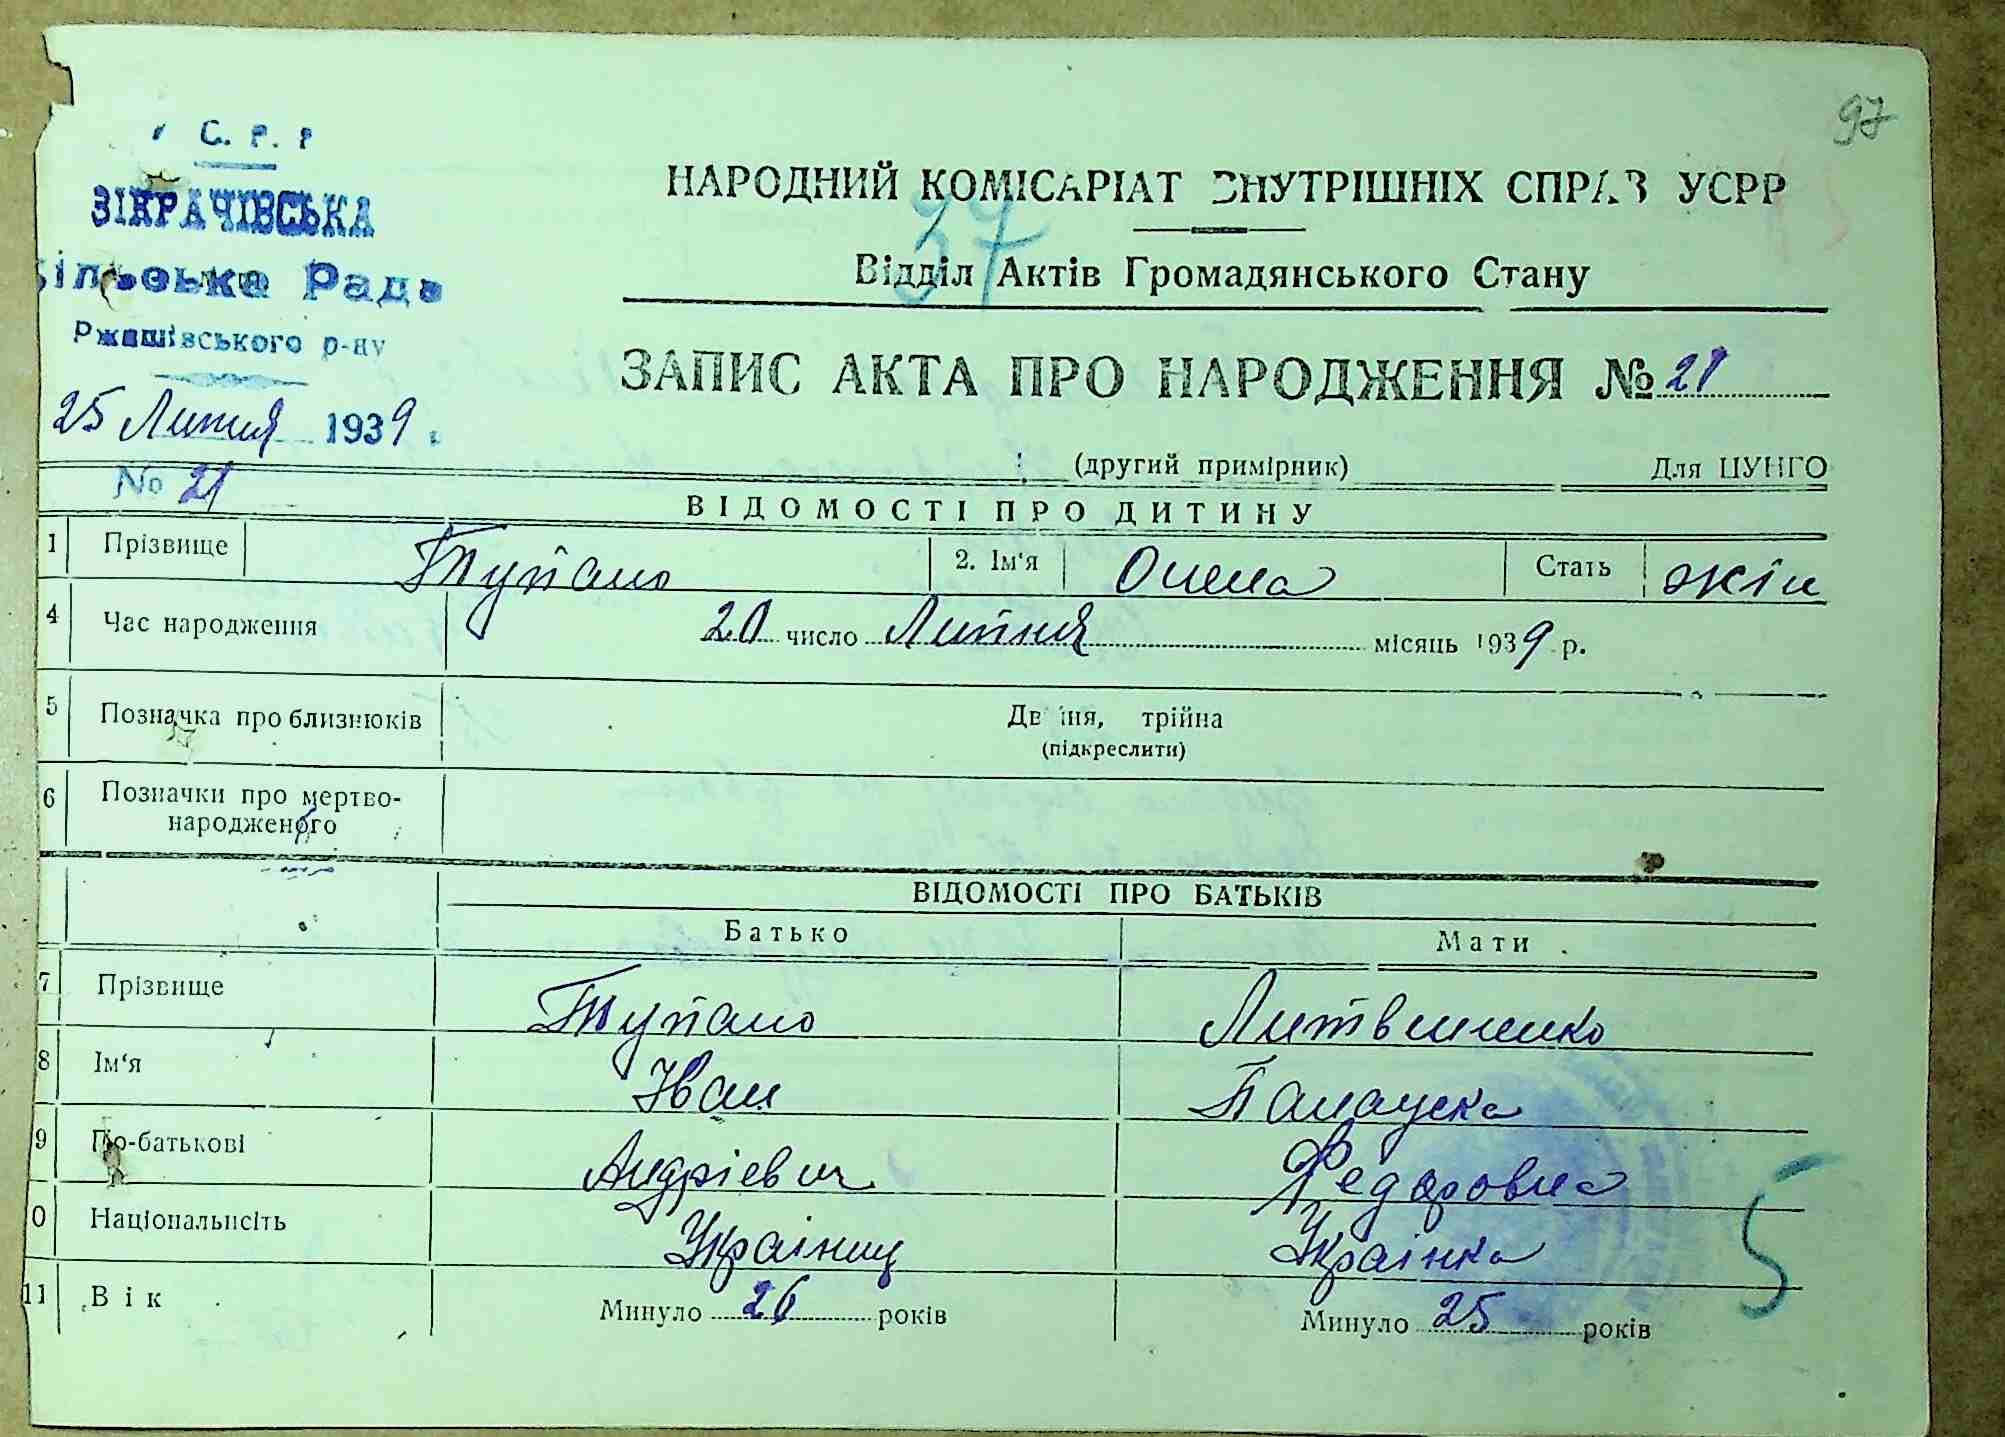 97
С. Р. Р
ЗІКРАЧІВСЬКА
сільська Рада
Ржищівського р-ну
25 Липня 1939 р.
№ 21
НАРОДНИЙ КОМІСАРІАТ ВНУТРІШНІХ СПРАВ УСРР
37
Відділ Актів Громадянського Стану
ЗАПИС АКТА ПРО НАРОДЖЕННЯ № 21
(другий примірник) Для ЦУНГО
ВІДОМОСТІ ПРО ДИТИНУ
1 Прізвище Тупало 2. Ім'я Олена Стать жін
4 Час народження 20 число Липня місяць 1939 р.
5 Позначка про близнюків Двійня, трійна
(підкреслити)
6 Позначки про мертво-
народженого
ВІДОМОСТІ ПРО БАТЬКІВ
Батько Мати
7 Прізвище Тупало Литвиненко
8 Ім'я Іван Палажка
9 По-батькові Андрієвич Федоровна
0 Національність Українец Українка
11 Вік Минуло 26 років Минуло 25 років
5